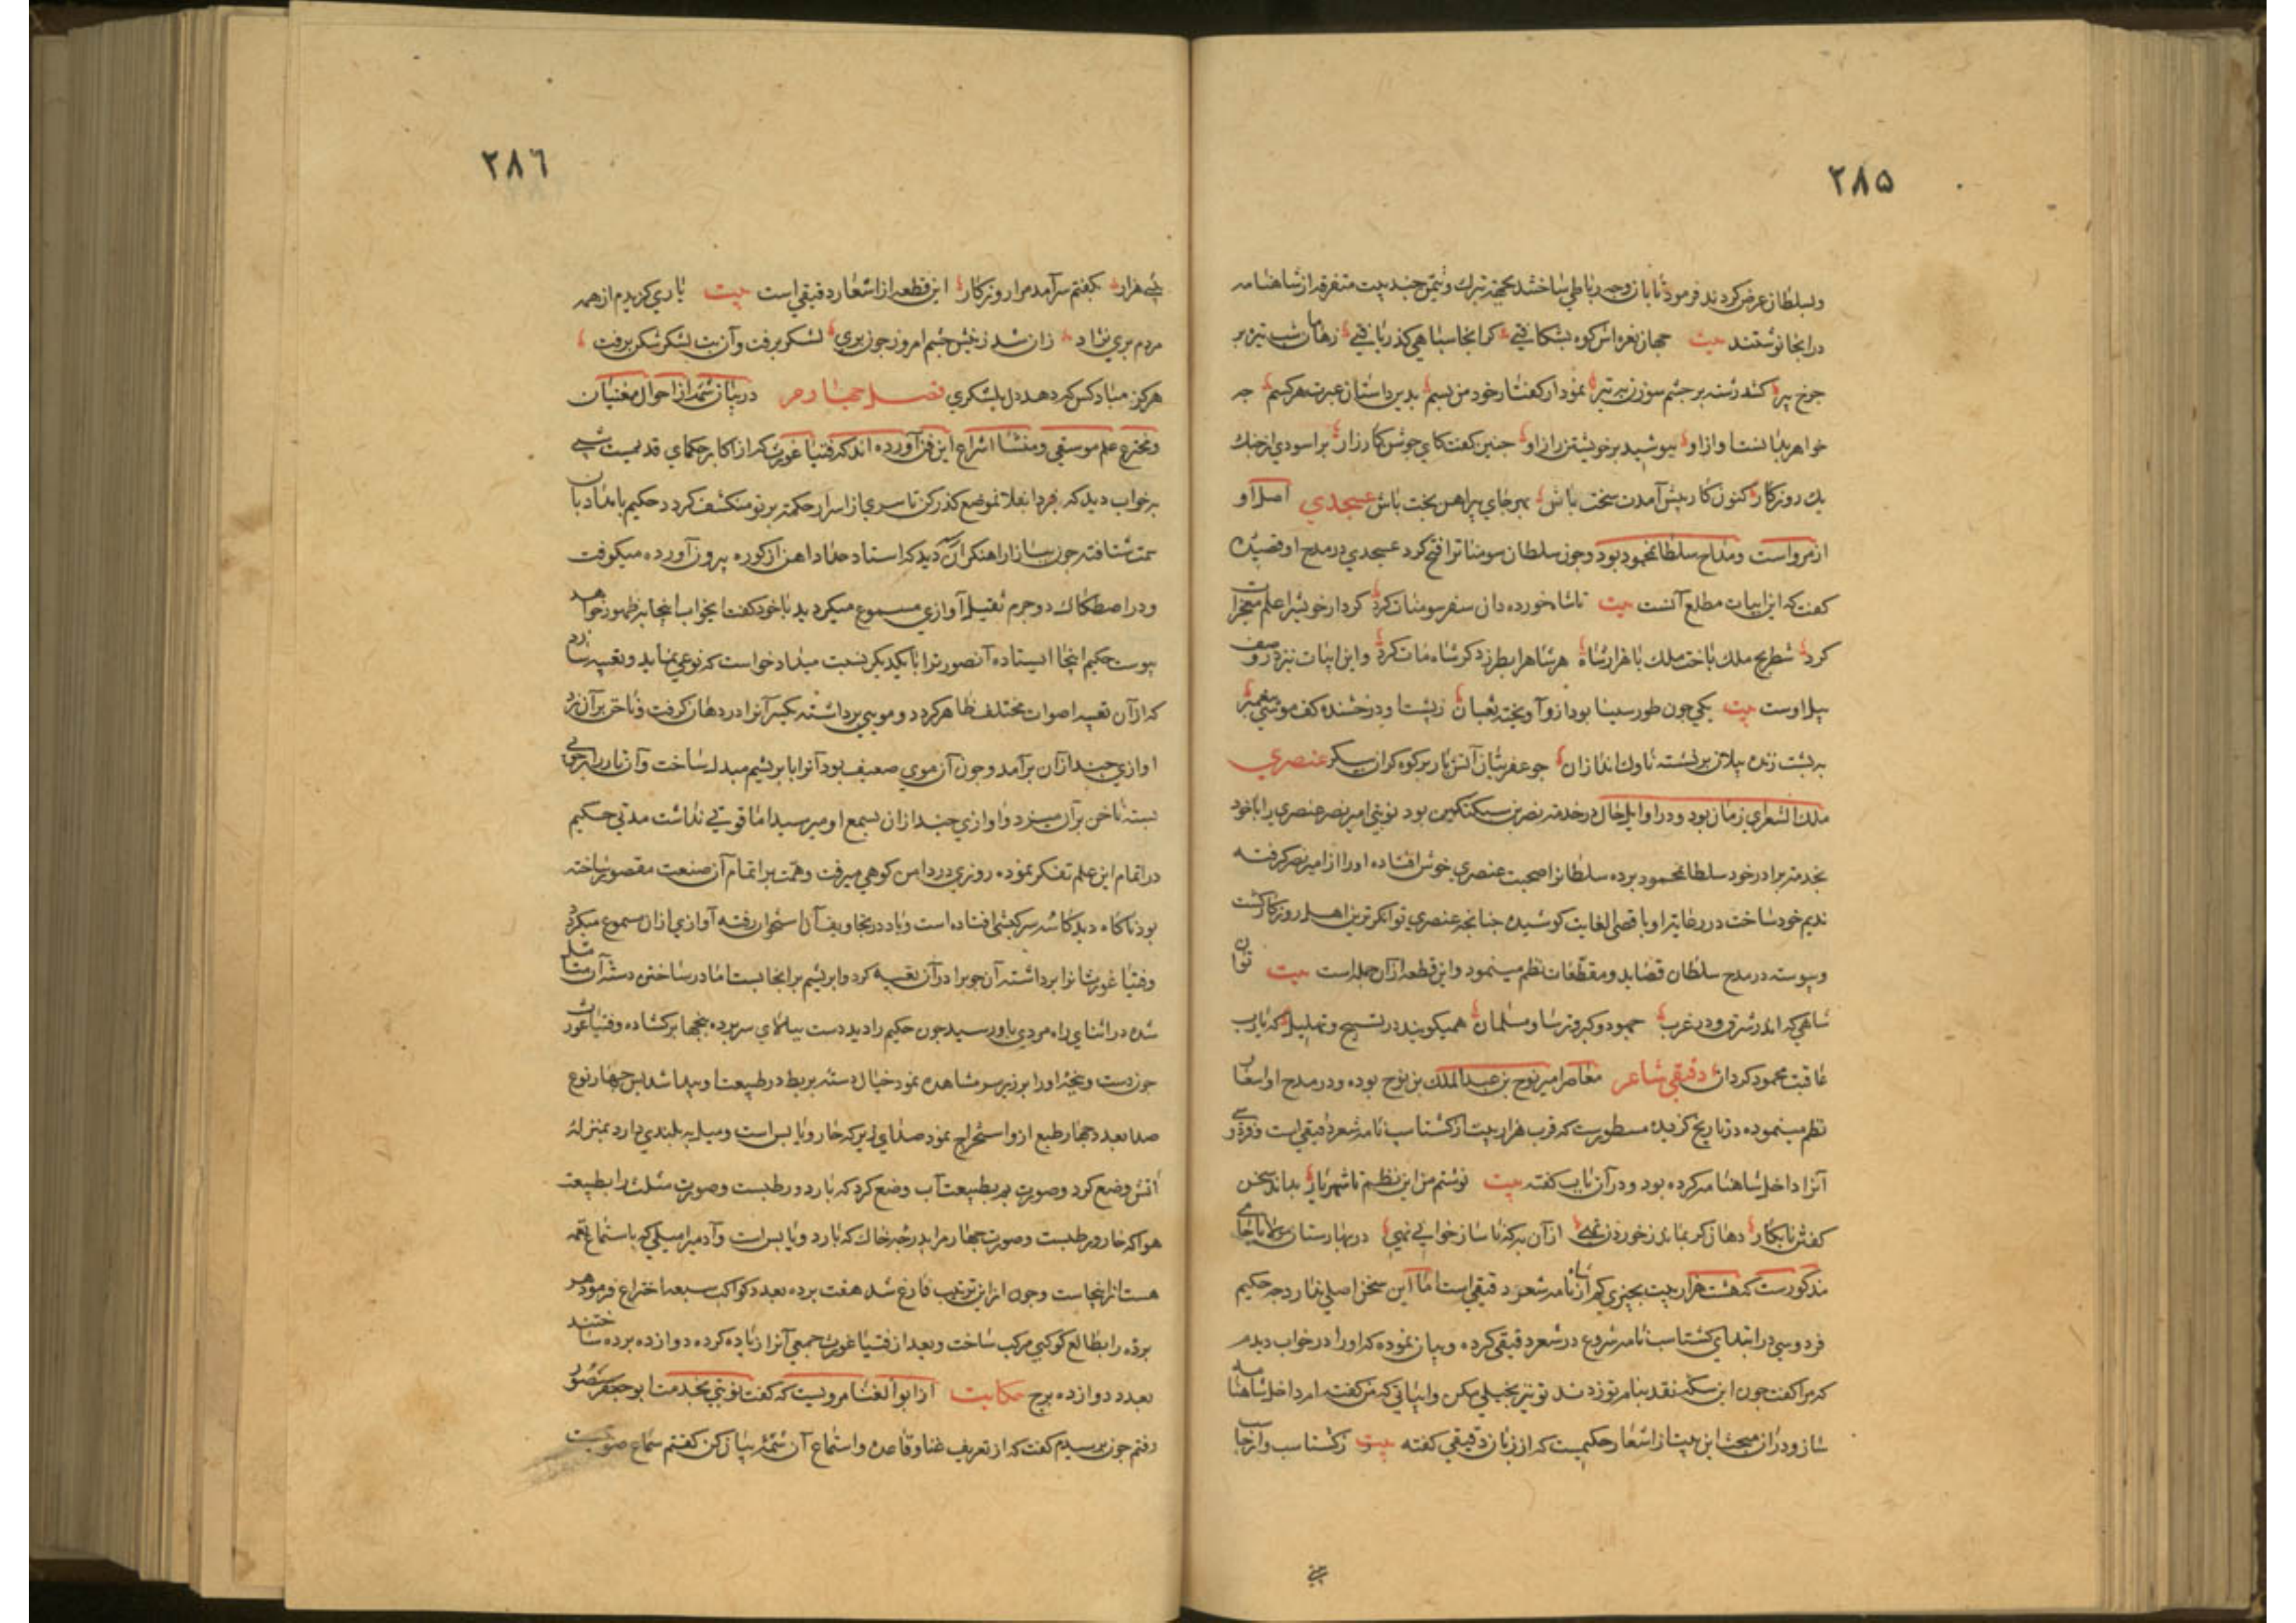 ۲۸۵
وبسلطان عرض کردند فرمود تا بازان وجه رباطی ساختند بجهة تبرک وتیمن چند بیت متفرقه از شاهنامه
در انجا نوشتند بیت جهان از نعره اش کوه بشکافتی که انجا سپاهی گذر یافتی زهامان شب تیره بر
چرخ پیر کند رشته بر چشم سوزن به تیر نمودار کفتار خود من بسم بدین داستان عبرت هر کسم چه
خواهر بدانست واز او بپوشید بر خویشتن راز او چنین کفت کای جوش کارزار براسودی از جنک
یک روزکار کنون کار پیش آمدت سخت باش بهر جای پیراهن بخت باش عسجدی اصل او
از مرو است ومداح سلطان محمود بود وچون سلطان سومنات را فتح کرد عسجدی در مدح او قصیده
کفت که این ابیات مطلع آنست بیت تا شاه خورده دان سفر سومنات کرد کردار خویش را علم معجزات
کرد شطرنج ملک باخت ملک با هزار شاه هر شاه را بطرز دکر شاه مات کرد واین ابیات نیزه در وصف
پیل اوست بیت یکی چون طور سینا بود ازو آویخته ثعبان ز پشتاو درخشنده کف موسی پیغمبر
به پشت زنده پیلان بر نشسته ناوک اندازان چو عفریتان آتش بار بر کوه کران پیکر عنصری
ملک الشعرای زمان بود ودر اوایل حال در خدمت نصر بن سبکتکین بود نوبتی امیر نصر عنصری را با خود
بخدمت برادر خود سلطان محمود برده سلطان را صحبت عنصری خوش افتاده اورا از امیر نصر کرفته
ندیم خود ساخت در رعایت او باقصی الغایت کوشیده چنانچه عنصری توانکر ترین اهل روزکار کشت
وپیوسته در مدح سلطان قصاید ومقطعات نظم مینمود واین قطعه از آن جمله است بیت توان
شاهی که اندر شرق ودر غرب جهود وکبر وترسا ومسلمان همیکویند در تسبیح وتهلیل که یا رب
عاقبت محمود کردان دقیقی شاعر معاصر امیر نوح بن عبد الملک بن نوح بوده ودر مدح او اشعار
نظم مینموده در تاریخ کزیده مسطورست که قرب هزار بیت از کشتاسب نامه شعر دقیقی است وفردوسی
آنرا داخل شاهنامه کرده بود ودر آن باب کفته بیت نوشتم من این نظم تا شهریار بداند سخن
کفتن نابکار دهان کر بماند ز خوردن تهی از آن به که ناساز خوانی نهی در بهارستان مولانا جامی
مذکورست که هشت هزار بیت بچیزی کم از شاهنامه شعر دقیقی است اما این سخن اصلی ندارد چه حکیم
فردوسی در ابتدای کشتاسب نامه شروع در شعر دقیقی کرده وبیان نموده که اورا در خواب دیدم
که مرا کفت چون این سکه نقد بنام تو زدند تو نیز بخیلی مکن وابیاتی که من کفته ام داخل شاهنامه
ساز ودر آن مبحث این بیت از اشعار حکیمست که از زبان دقیقی کفته بیت ز کشتاسب وارجاسب
بیتی
۲۸٦
بیتی هزار بکفتم سرآمد مرا روزکار این قطعه از اشعار دقیقی است بیت یاری کزیدم از همه
مردم پری نژاد زان شد ز پیش چشم امروز چون پری لشکر برفت وآن بت لشکر شکن برفت
هرکز مباد کس که دهد دل بلشکری فصل چهارم در بیان شمه از احوال مغنیان
ومخترع علم موسیقی ومنشأ اختراع این فن آورده اند که فیثاغورث که از اکابر حکمای قدیمست شبی
در خواب دید که فردا بفلان موضع کذر کن تا سری از اسرار حکمت بر تو منکشف کردد حکیم بامدادبان
سمت شتافته چون ببازار اهنکران رسید دید که استاد حداد اهن از کوره بیرون آورده میکوفت
ودر اصطکاک دو جرم ثقیل آوازی مسموع میکردید با خود کفت تعبیر خواب اینجا بظهور خواهد
پیوست حکیم اینجا ایستاده آنصورت را با یکدیکر نسبت میداد خواست که نوعی نماید وتعبیه سازد
که از آن تعبیه اصوات مختلف ظاهر کردد ومویی برداشته یکسر آنرا در دهان کرفت وناخن بر آن زد
اوازی چند ازان برآمد وچون آن موی ضعیف بود آنرا بابریشم مبدل ساخت وآن تار را بر چوبی
بسته ناخن بر آن میزد واوازی چند ازان بسمع او میرسید اما قوتی نداشت مدتی حکیم
در اتمام این علم تفکر نموده روزی در دامن کوهی میرفت وهمت بر اتمام آن صنعت مقصور ساخته
بود ناکاه دید کاسه سر کشفی افتاده است وباد در تجاویف آن استخوان رفته آوازی ازان مسموع میکردد
وفیثاغورث انرا برداشته آن چوبرا در آن تعبیه کرد وابریشم بر انجا بست اما در ساختن دسته آن متأمل
شده در اثنای راه مردی باو رسید چون حکیم را دید دست بپیلهای سر برده پنجها برکشاده وفیثاغورث
چون دست وپنجه اورا بر زیر سر مشاهده نمود خیال دسته بربط در طبیعت او پیدا شد پس چهار نوع
صدا بعدد چهار طبع ازو استخراج نمود صدای زیر که حار ویابس است ومیل به بلندی دارد بمنزله
آتش وضع کرد وصورت بم بطبیعت آب وضع کرد که بارد ورطبست وصورت مثلث را بطبیعت
هوا که حار ورطبست وصورت چهارم را بدرجه خاک که بارد ویابس است وآدمیرا میلی که باستماع نغمه
هست از اینجاست وچون از این ترتیب فارغ شد هفت پرده بعدد کواکب سبعه اختراع فرمود هر
پرده را بطالع کوکبی مرکب ساخت وبعد از فیثاغورث جمعی آنرا زیاده کرده دوازده پرده ساختند
بعدد دوازده برج حکایت از ابو الغنا مرویست که کفت نوبتی بخدمت ابو جعفر منصور
رفتم چون برسیدم کفت که از تعریف غنا وقاعده واستماع آن شمه بیان کن کفتم سماع صوتیست